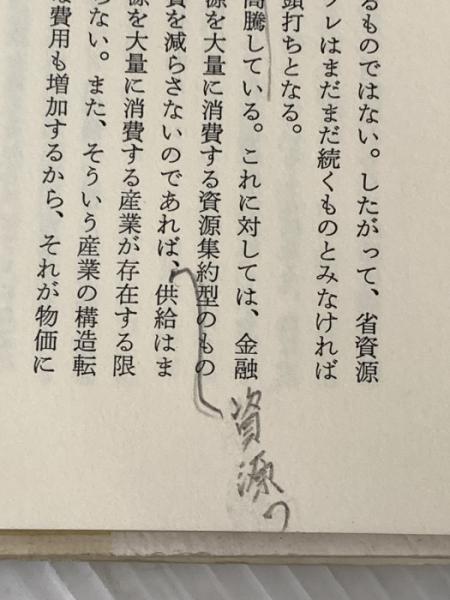 るものではない。したがって、省資源
フレはまだまだ続くものとみなければ
頭打ちとなる。
高騰している。これに対しては、金融
源を大量に消費する資源集約型のもの
費を減らさないのであれば、供給はま
源を大量に消費する産業が存在する限
らない。また、そういう産業の構造転
費用も増加するから、それが物価に
資源の